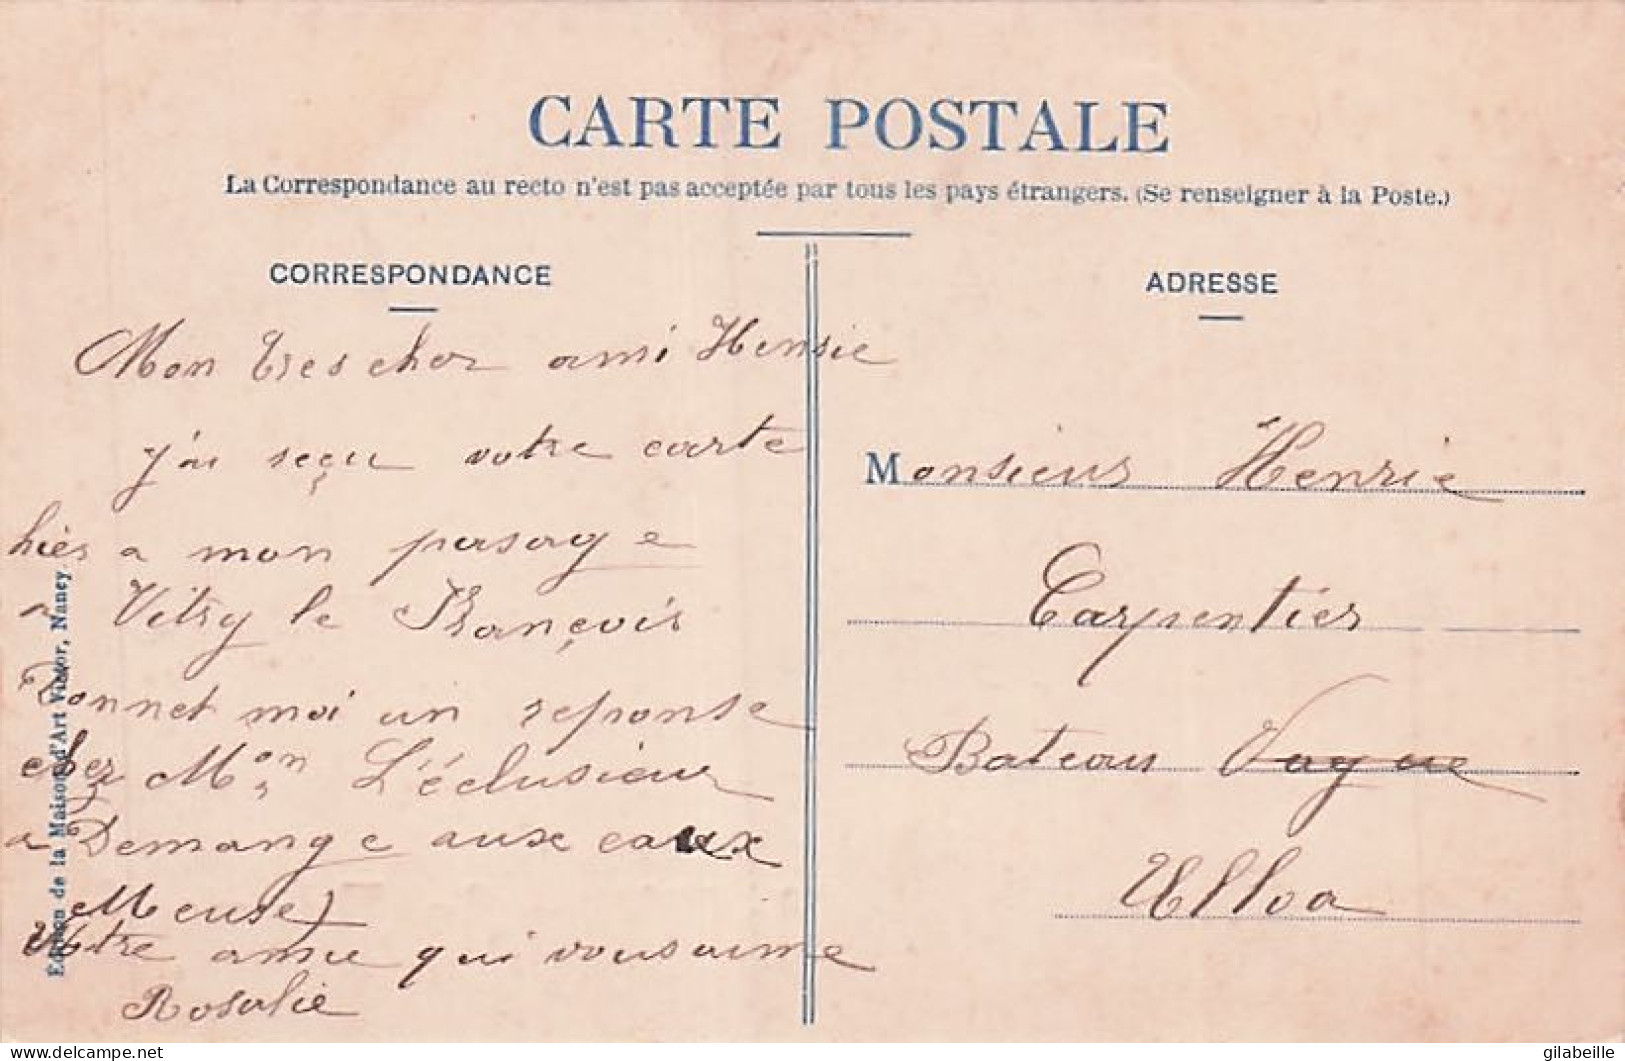 CARTE POSTALE
La Correspondance au recto n'est pas acceptée par tous les pays étrangers. (Se renseigner à la Poste.)
CORRESPONDANCE
Mon tres cher ami Henrie
j'ai reçu votre carte
hier a mon pasage
a Vitry le François
Donnet moi un reponse
chez Mon L'éclusieur
a Demange aux eaux
Meuse)
Votre amie qui vous aime
Rosalie
ADRESSE
Monsieur Henrie
Carpentier
Bateau Vague
Ulloa
Edition de la Maison d'Art Victor, Nancy
delcampe.net
gilabeille